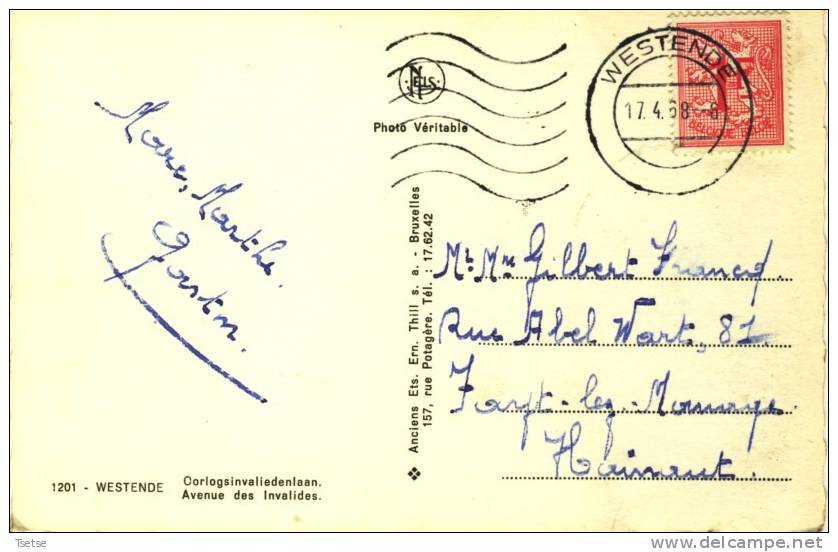 WESTENDE
17.4.68-8
NELS
Photo Véritable
Marc, Marthe.
Gaston.
Anciens Ets. Ern. Thill s. a. - Bruxelles
157, rue Potagère. Tél. : 17.62.42
Mr. Mme Gilbert Francq
Rue Abel Wart, 81
Fayt-lez-Manage
Hainaut.
1201 - WESTENDE
Oorlogsinvaliedenlaan.
Avenue des Invalides.
Tsetse
http://www.delcampe.net